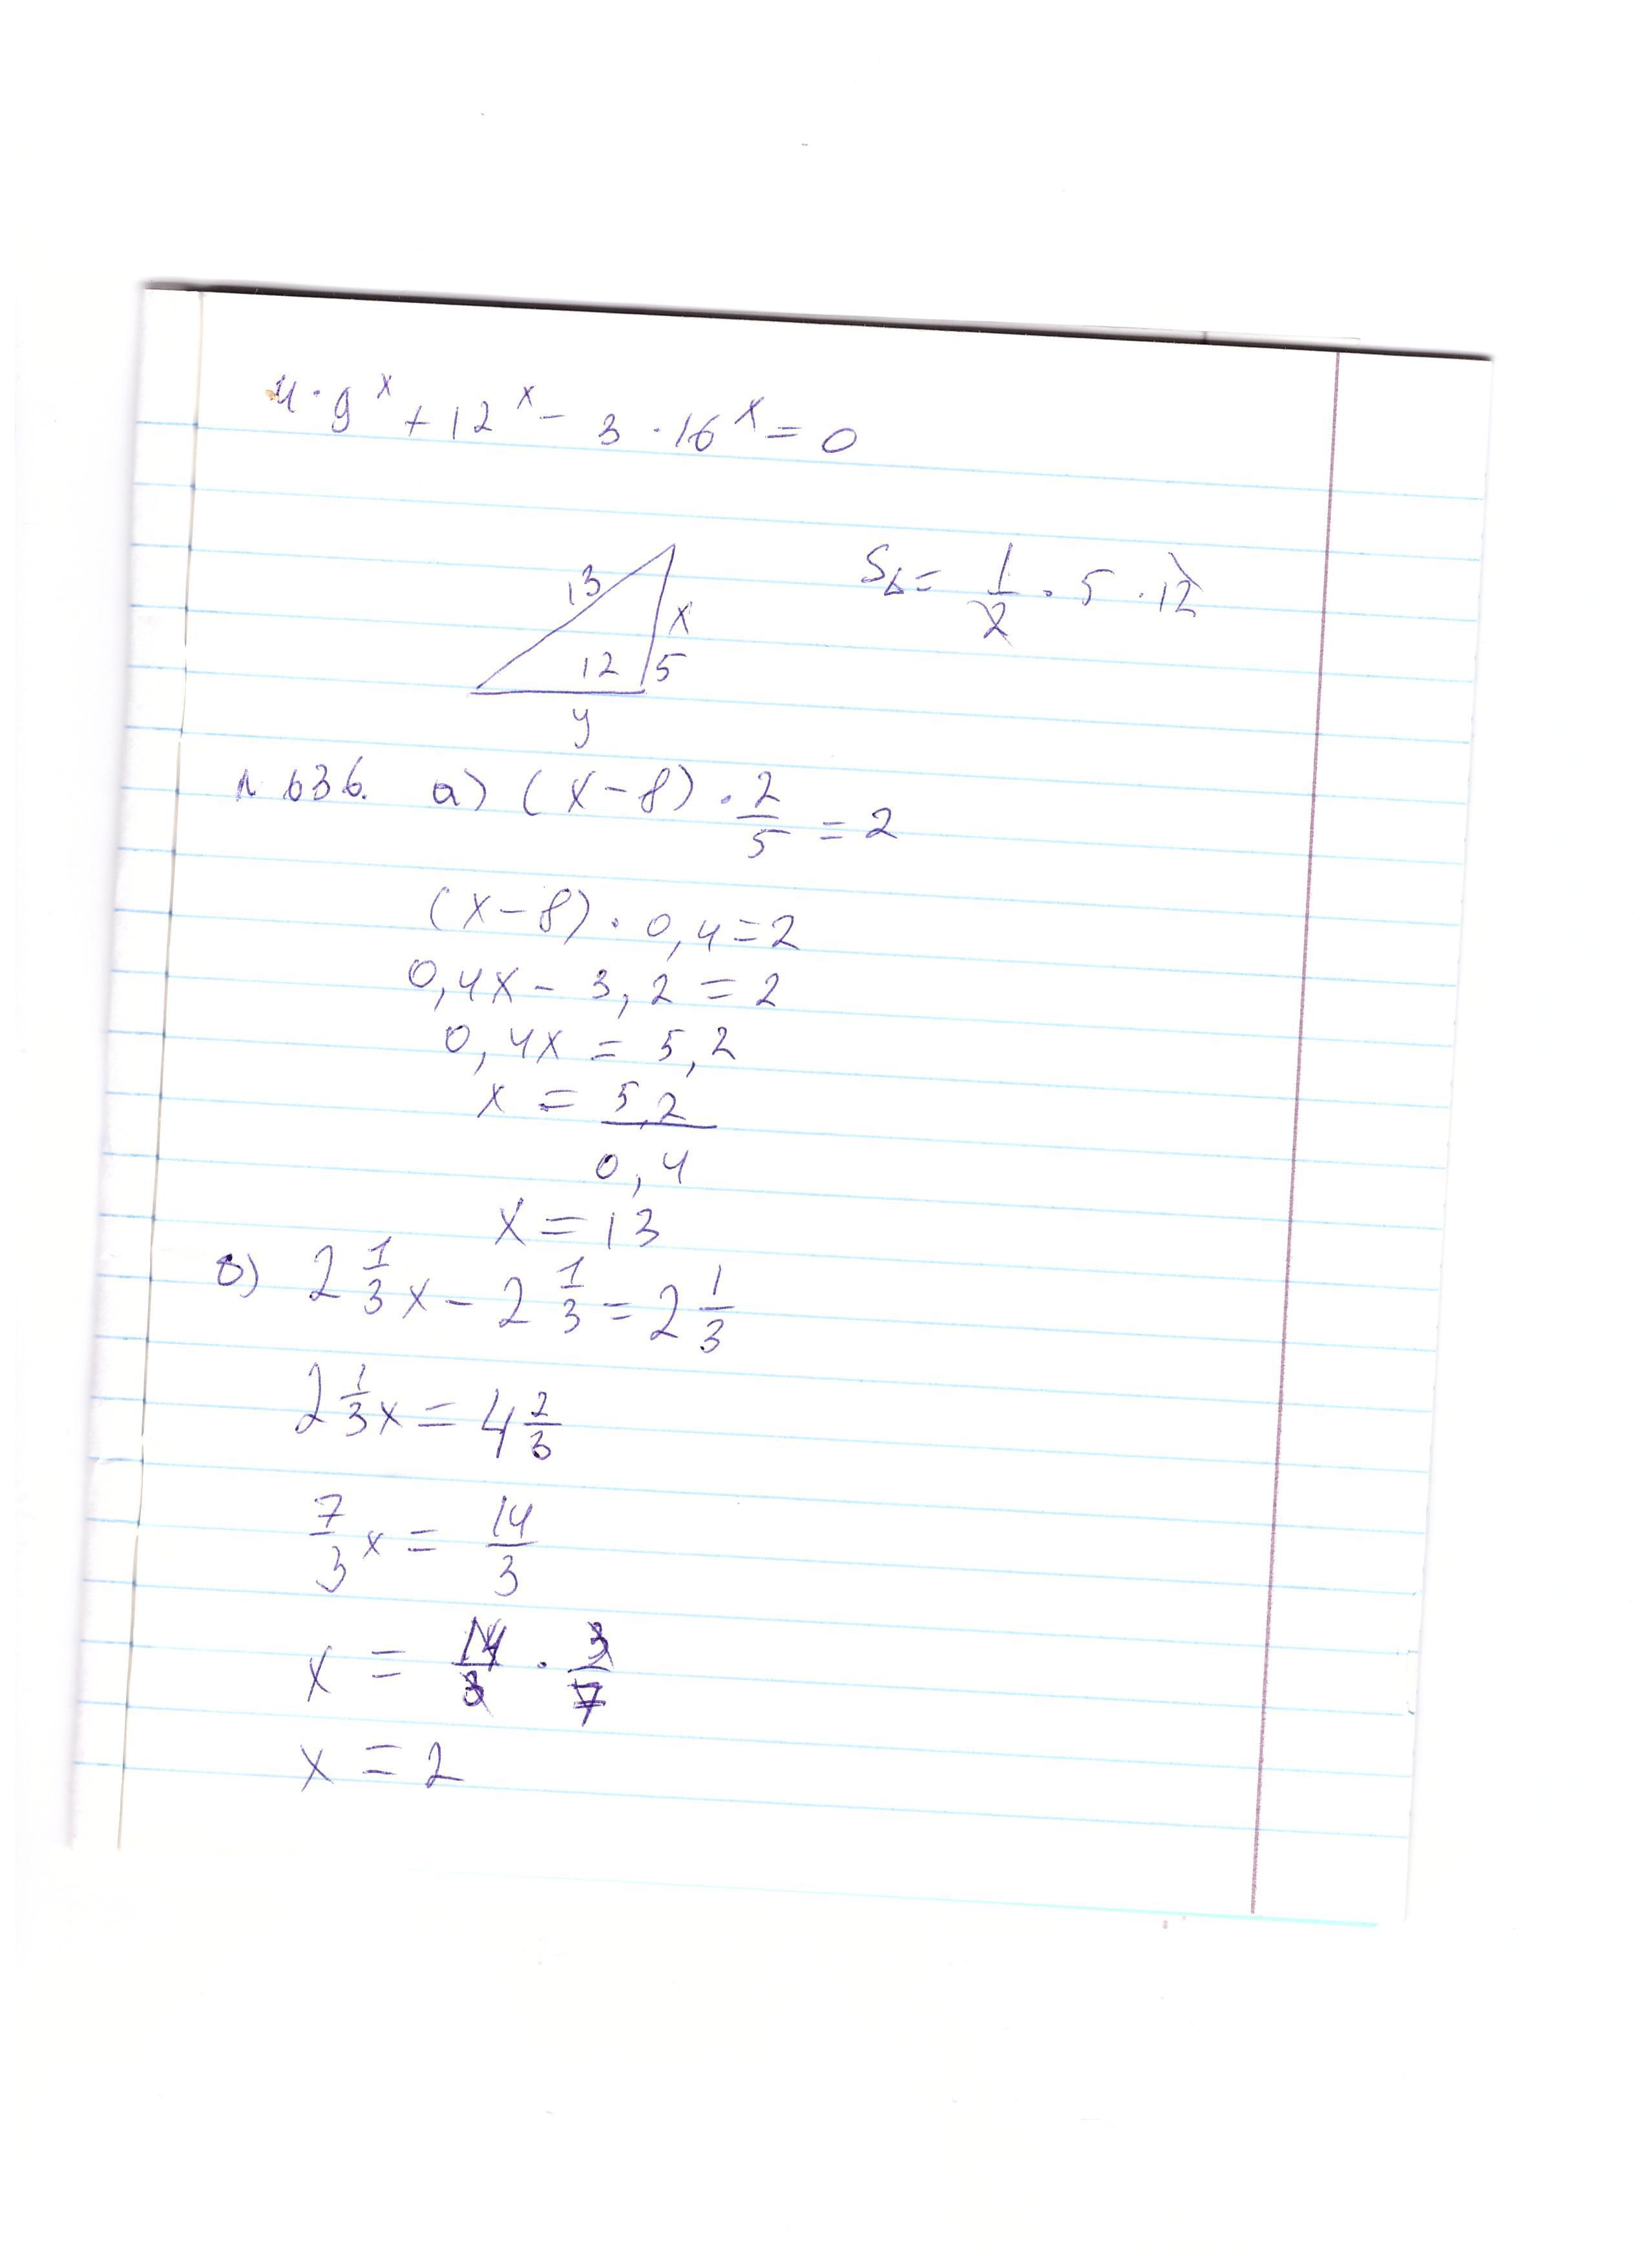 4 · 9^x + 12^x - 3 · 16^x = 0
13
x
12 5
y
S△ = 1/2 · 5 · 12
№ 636. а) (x-8) · 2/5 = 2
(x-8) · 0,4 = 2
0,4x - 3,2 = 2
0,4x = 5,2
x = 5,2/0,4
x = 13
в) 2 1/3 x - 2 1/3 = 2 1/3
2 1/3 x = 4 2/3
7/3 x = 14/3
x = 14/3 · 3/7
x = 2